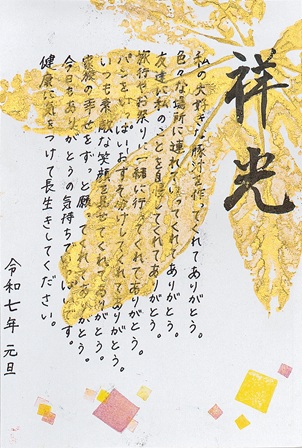 祥光
私の大好きな豚汁を作ってくれてありがとう。
色々な場所に連れていってくれてありがとう。
友達に私のことを自慢してくれてありがとう。
旅行やお祭りに一緒に行ってくれてありがとう。
パンをいっぱいおすそ分けしてくれてありがとう。
いつも素敵な笑顔を見せてくれてありがとう。
家族の幸せをずっと願ってくれてありがとう。
今日もありがとうの気持ちでいっぱいです。
健康に気をつけて長生きしてください。
令和七年 元旦